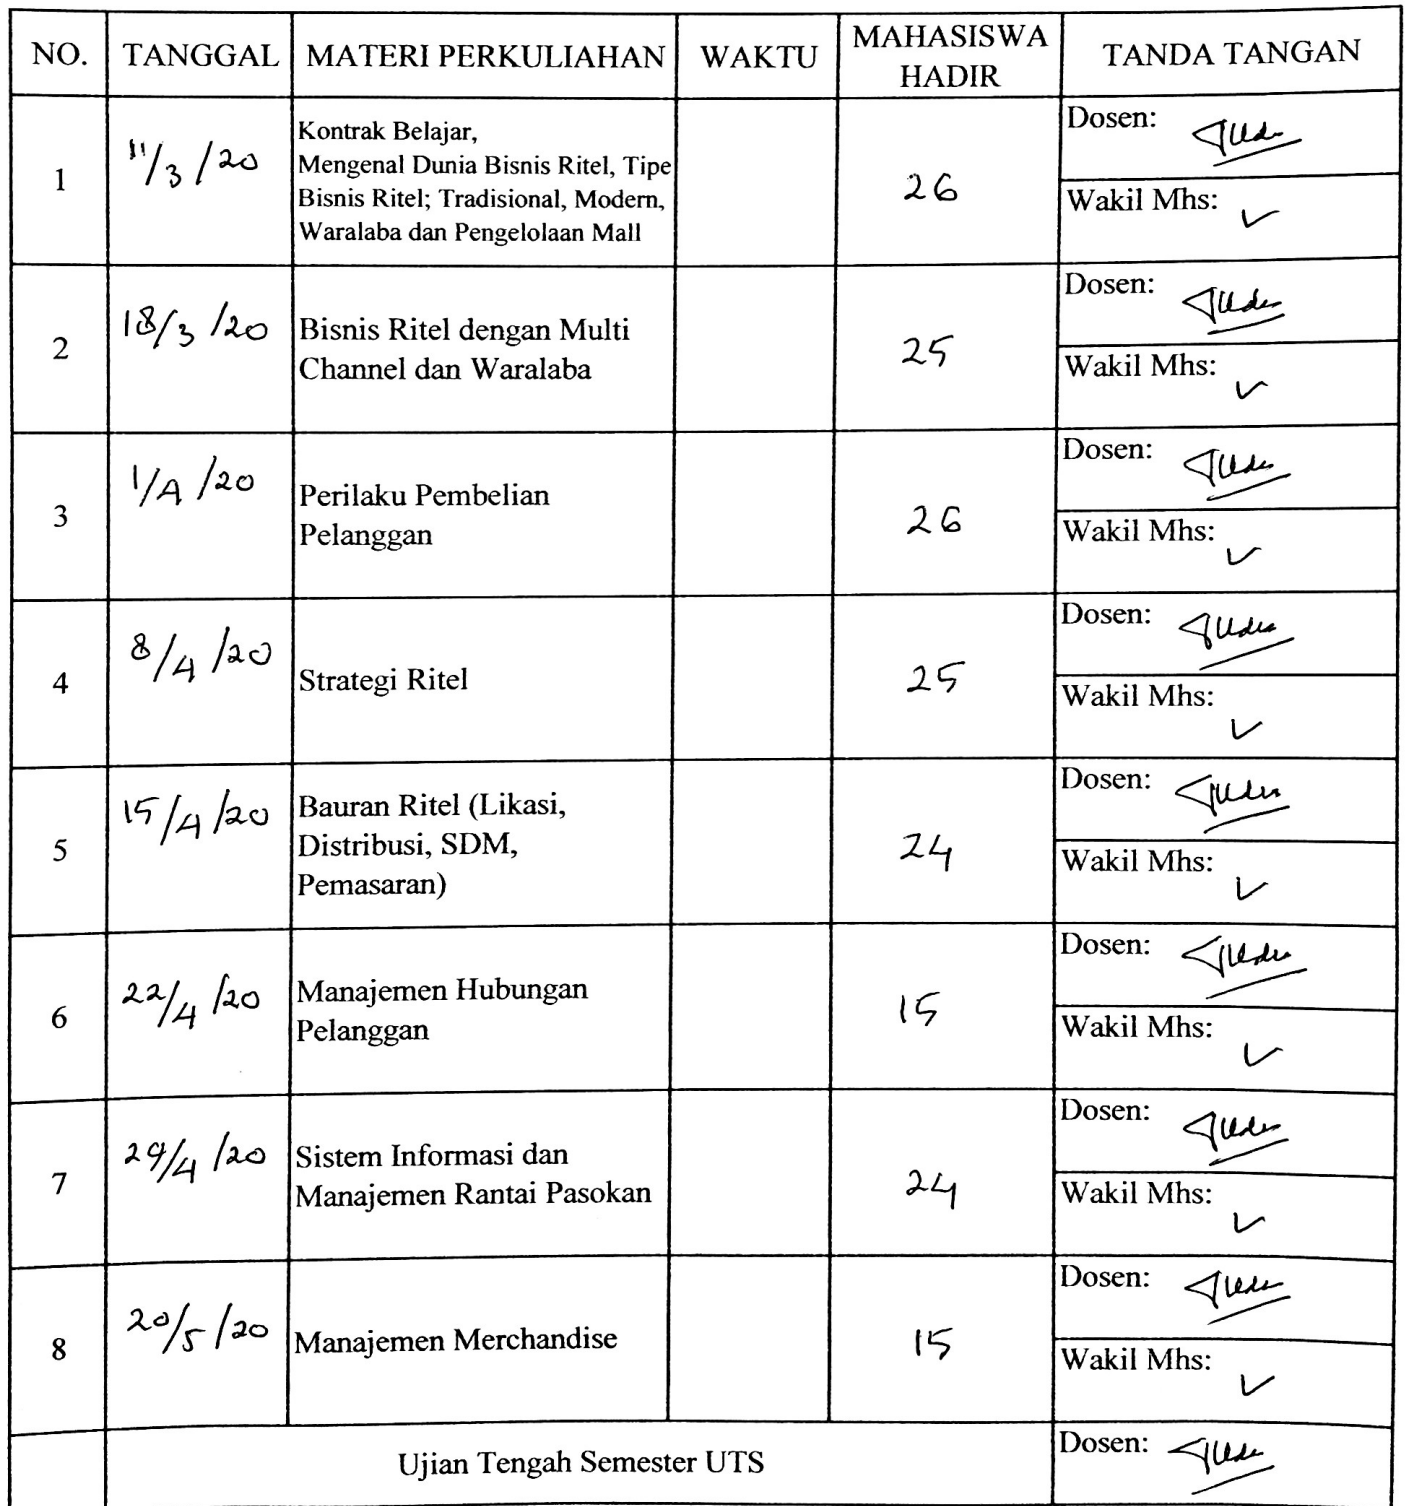 NO. TANGGAL MATERI PERKULIAHAN WAKTU MAHASISWA HADIR TANDA TANGAN
1 11/3/20 Kontrak Belajar,
Mengenal Dunia Bisnis Ritel, Tipe
Bisnis Ritel; Tradisional, Modern,
Waralaba dan Pengelolaan Mall
26
Dosen:
Wakil Mhs:
2 18/3/20 Bisnis Ritel dengan Multi
Channel dan Waralaba
25
Dosen:
Wakil Mhs:
3 1/4/20 Perilaku Pembelian
Pelanggan
26
Dosen:
Wakil Mhs:
4 8/4/20 Strategi Ritel
25
Dosen:
Wakil Mhs:
5 15/4/20 Bauran Ritel (Likasi,
Distribusi, SDM,
Pemasaran)
24
Dosen:
Wakil Mhs:
6 22/4/20 Manajemen Hubungan
Pelanggan
15
Dosen:
Wakil Mhs:
7 29/4/20 Sistem Informasi dan
Manajemen Rantai Pasokan
24
Dosen:
Wakil Mhs:
8 20/5/20 Manajemen Merchandise
15
Dosen:
Wakil Mhs:
Ujian Tengah Semester UTS
Dosen: